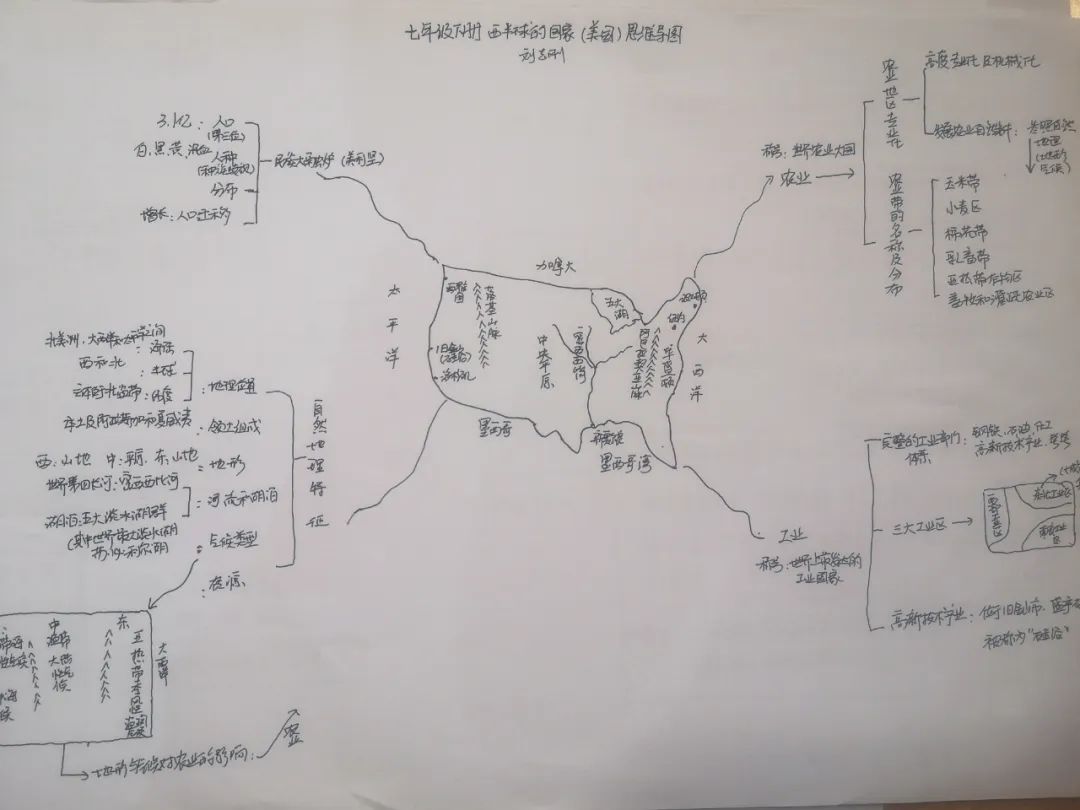 七年级下册 西半球的国家(美国)思维导图
3.1亿:人口
(第三位)
白、黑、黄、混血
人种
(种族歧视)
分布
增长:人口迁移
民族大熔炉(美利坚)
称号:世界农业大国
农业
农业地区专业化
高度专业化及机械化
发展农业自然条件:
农业带的名称及分布
玉米带
小麦区
棉花带
乳畜带
亚热带作物区
畜牧和灌溉农业区
加拿大
太平洋
大西洋
西雅图
落基山脉
旧金山
洛杉矶
中央平原
密西西比河
五大湖
波士顿
纽约
阿巴拉契亚山脉
华盛顿
墨西哥
墨西哥湾
自然地理特征
北美洲、大西洋太平洋之间
:海陆
西和北
:半球
:纬度
:地理位置
本土及阿拉斯加和夏威夷
:领土组成
西:山地 中:平原、东:山地
:地形
世界第四长河:密西西比河
湖泊:五大淡水湖群
(其中世界最大淡水湖
为:苏必利尔湖
:河流和湖泊
:气候类型
:资源
中
温带大陆性气候
东
亚热带季风性湿润气候
大西洋
地形气候对农业的影响:
农业
工业
称号:世界上最发达的
工业国家
完整的工业部门
体系
:钢铁、石油、化工
高新技术产业等等
三大工业区
西部工业区
东北工业区
南部工业区
高新技术产业:位于旧金山市、
被称为"硅谷"